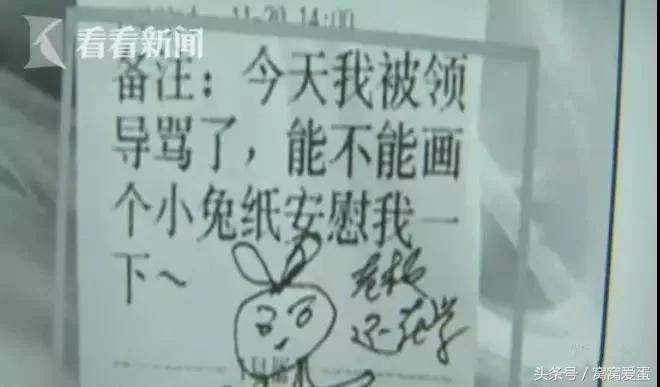 11-20 14:00
看看新闻
备注：今天我被领
导骂了，能不能画
个小兔纸安慰我一
下～
老板
还在学
头条号／窝窝爱蛋